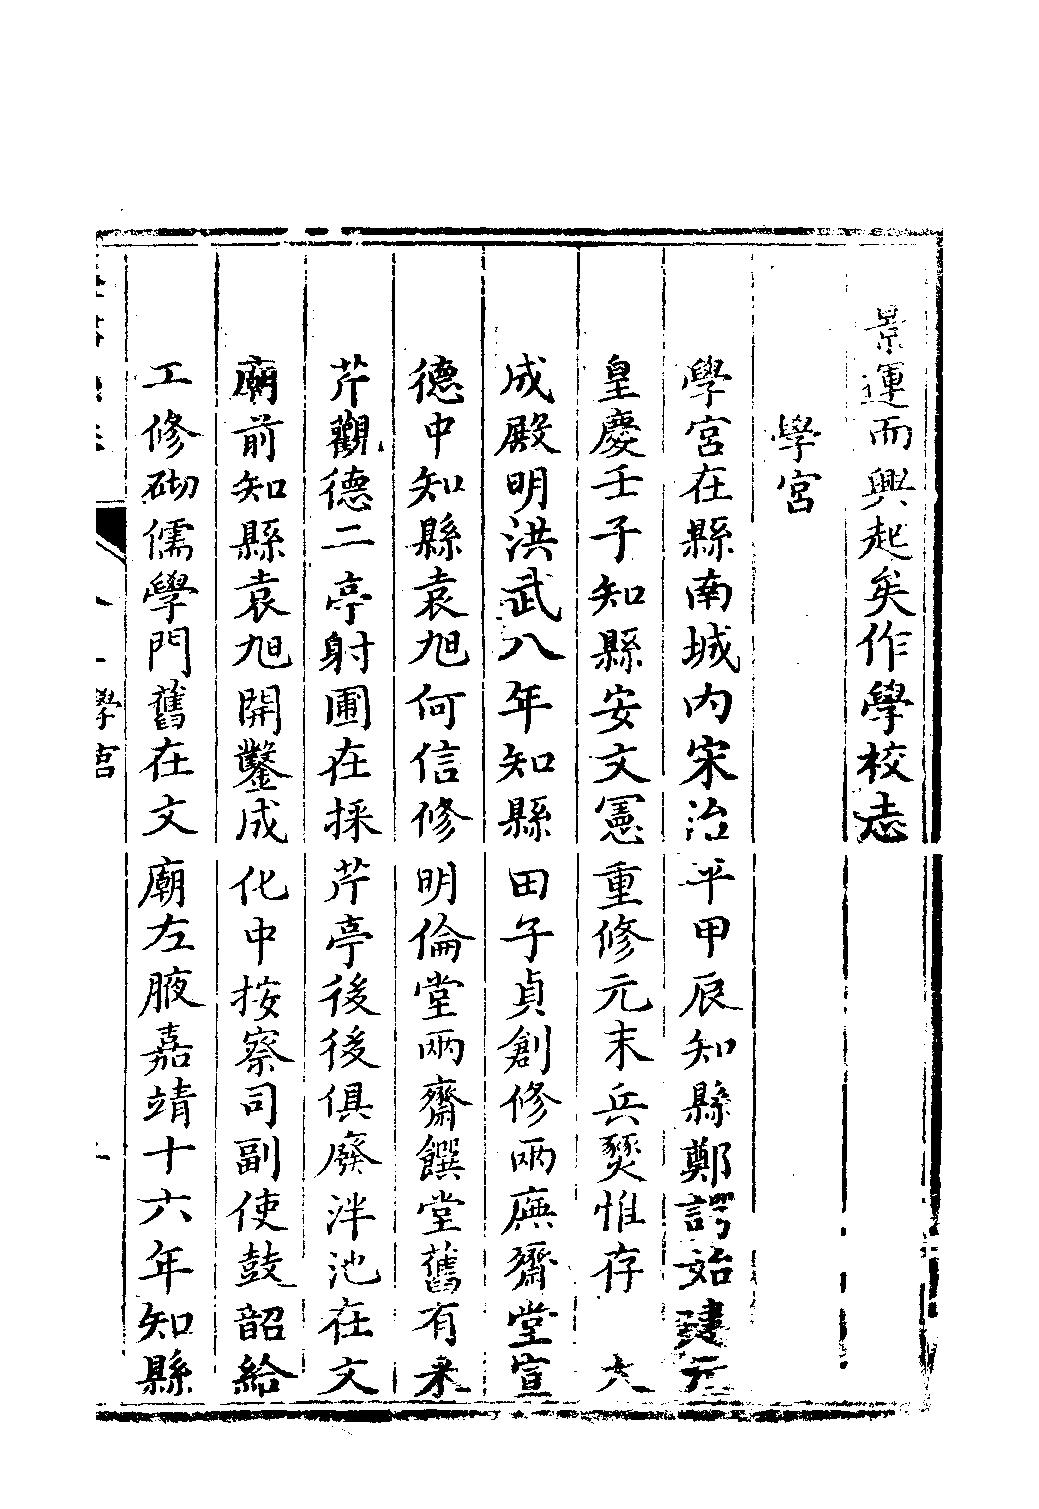 景運而興起矣作學校志
學宮
學宮在縣南城內宋治平甲辰知縣鄭諤始建元
皇慶壬子知縣安文憲重修元末兵燹惟存大
成殿明洪武八年知縣田子貞創修兩廡齋堂宣
德中知縣袁旭何信修明倫堂兩齋饌堂舊有采
芹觀德二亭射圃在採芹亭後後俱廢泮池在文
廟前知縣袁旭開鑿成化中按察司副使鼓韶給
工修砌儒學門舊在文廟左腋嘉靖十六年知縣
學宮